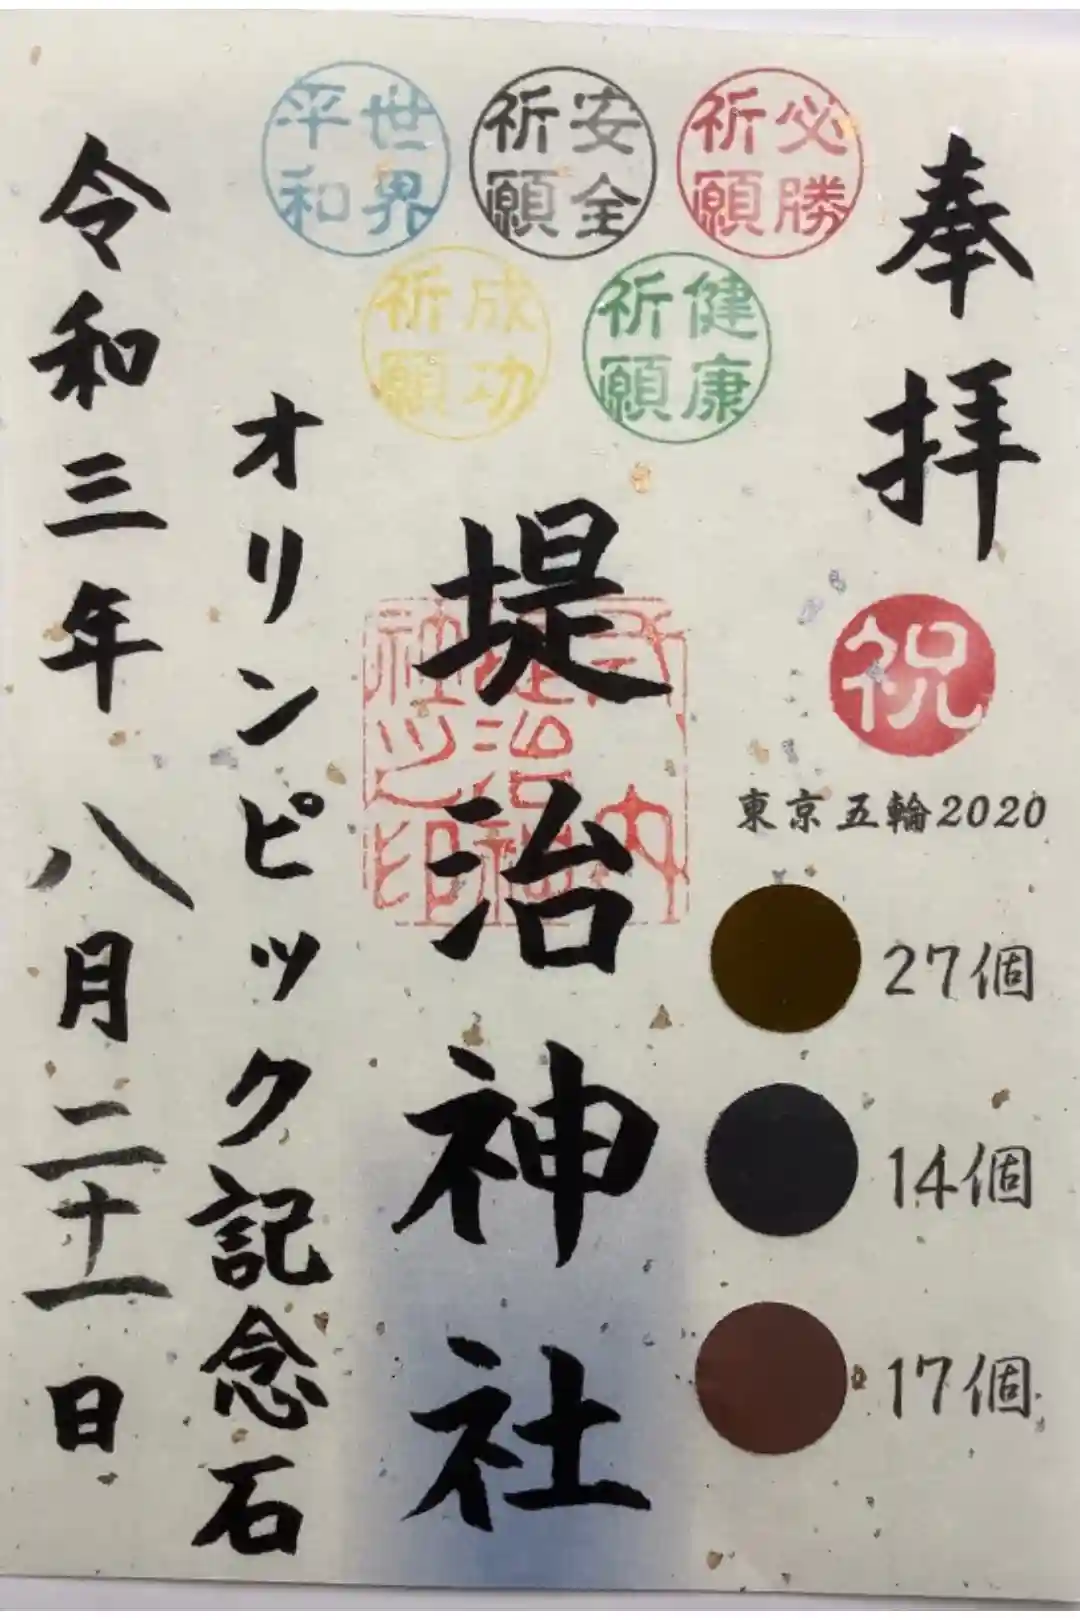 奉拝
祝
東京五輪2020
27個
14個
17個
必勝
祈願
安全
祈願
世界
平和
健康
祈願
成功
祈願
堤治神社
オリンピック記念石
令和三年八月二十一日